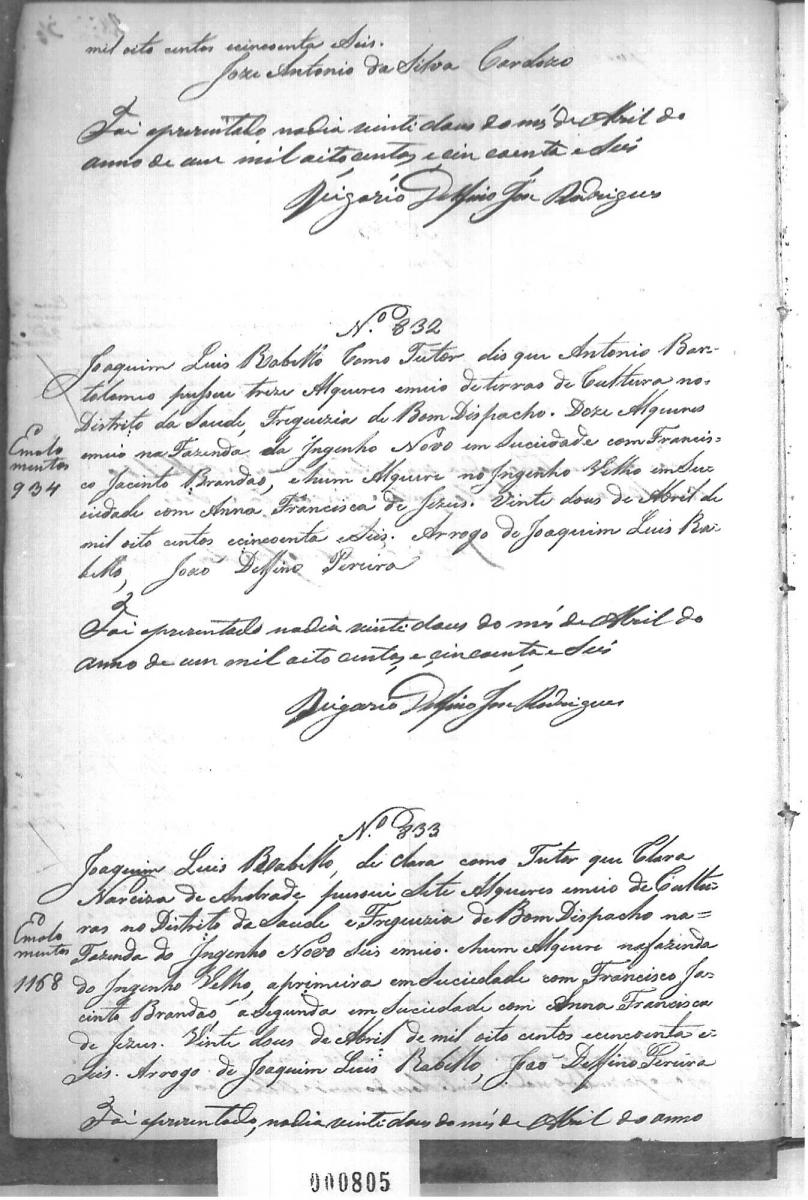 mil oito centos ecincoenta e Seis.
Joze Antonio da Silva Cardozo
Foi aprezentado nodia vinti dous do mês de Abril do
anno de um mil oito centos, e cincoenta e Seis
Vigario Delfino José Rodrigues
N.º 832
Joaquim Luis Rabello Como Tutor dis que Antonio Bar-
tolomio pussue treze Alqueres emeio de terras de Cultura no-
Distrito da Saude, Freguezia de Bom Dispacho. Doze Alqueres
emeio na Fazenda do Ingenho Novo em Suciedade com Francis-
co Jacinto Brandaõ, e hum Alquere no Ingenho Velho em Su-
ciedade com Anna Francisca de Jezus. Vinte dous de Abril de
mil oito centos ecincoenta e Seis. Arrogo de Joaquim Luis Ra-
bello, Joaõ Delfino Pereira
Emolo
mentos
934
Foi aprezentado nodia vinti dous do mês de Abril do
anno de um mil oito centos, e cincoenta e Seis
Vigario Delfino José Rodrigues
N.º 833
Joaquim Luis Rabello, de clara como Tutor que Clara
Narciza de Andrade pussui Sete Alqueres emeio de Cultu-
ras no Distrito da Saude e Freguezia de Bom Dispacho na=
Fazenda do Ingenho Novo Seis emeio. ehum Alquere nafazenda
do Ingenho Velho, aprimeira em Suciedade com Francisco Ja-
cinto Brandaõ a Segunda em Suciedade com Anna Francisca
de Jezus. Vinte dous de Abril de mil oito centos ecincoenta e-
Seis. Arrogo de Joaquim Luis Rabello, Joaõ Delfino Pereira
Emolo
mentos
1168
Foi aprezentado, nodia vinti dous do mês de Abril do anno
000805